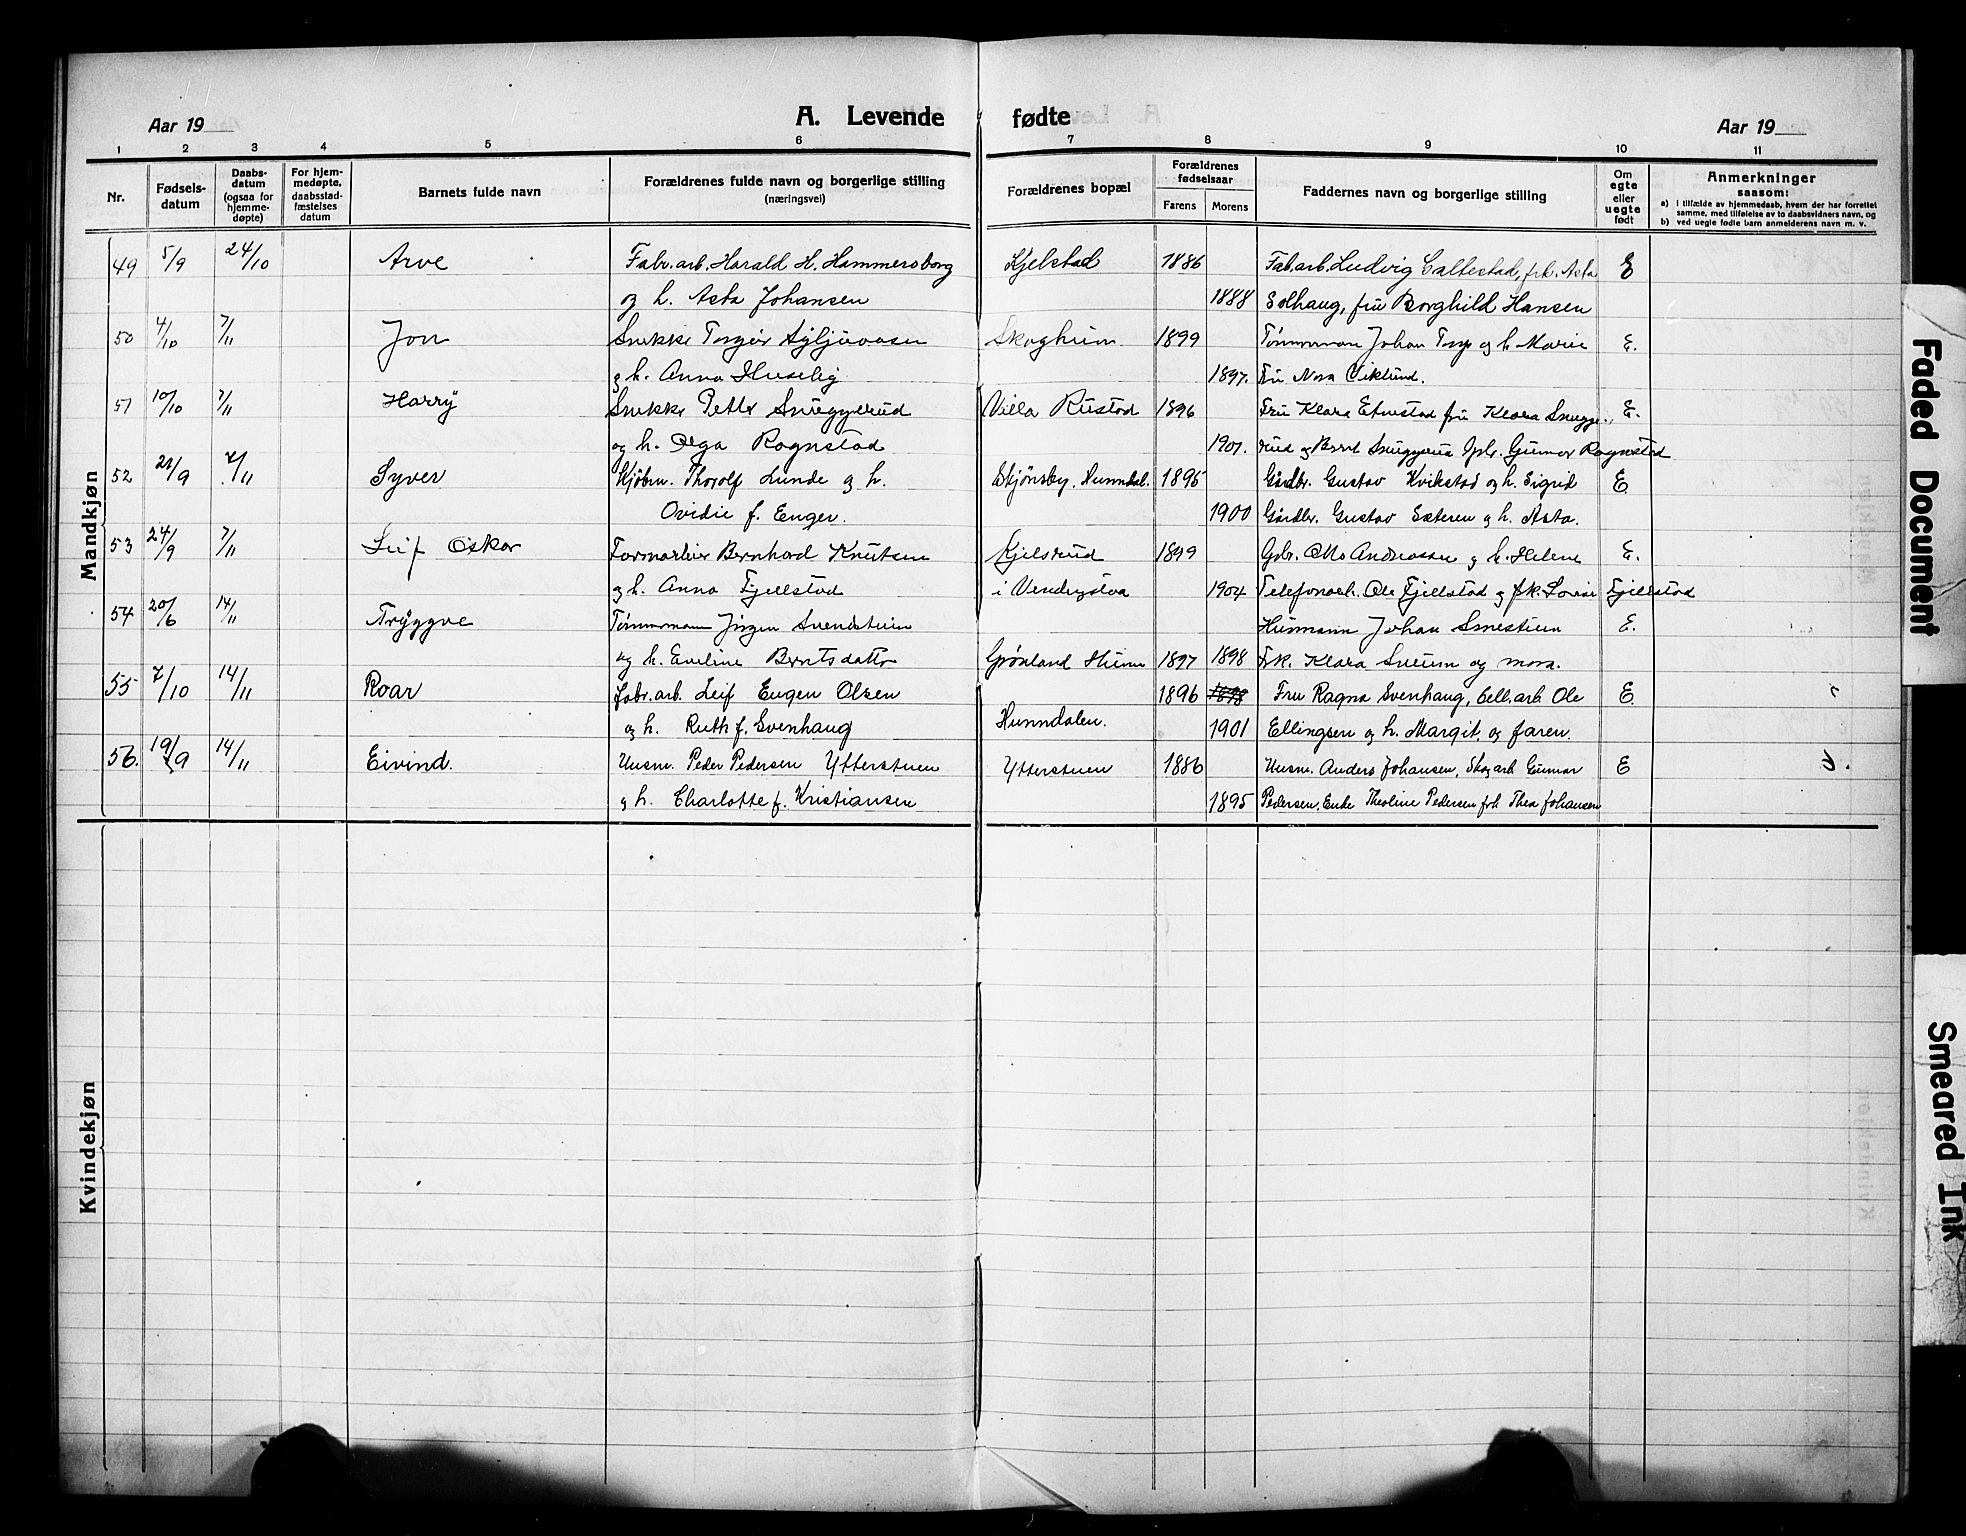 A. Levende fødte
Aar 19
Aar 19
1 2 3 4 5 6 7 8 9 10 11
Nr.
Fødsels-
datum
Daabs-
datum
(ogsaa for
hjemme-
døpte)
For hjem-
medøpte,
daabsstad-
fæstelses
datum
Barnets fulde navn
Forældrenes fulde navn og borgerlige stilling
(næringsvei)
Forældrenes bopæl
Forældrenes
fødselsaar
Farens Morens
Faddernes navn og borgerlige stilling
Om
egte
eller
uegte
født
Anmerkninger
saasom:
a) i tilfælde av hjemmedaab, hvem der har forrettet
samme, med tilføielse av to daabsvidners navn, og
b) ved uegte fødte barn anmelderens navn m. v.
Mandkjøn
49 5/9 24/10 Arve Fabr.arb. Harald H. Hammersborg Kjelstad 1886 Fab.arb. Ludvig Caltestad, frk. Asta E
og h. Asta Johansen 1888 Solhaug, fru Borghild Hansen
50 4/10 7/11 Jon Snekker Torgeir 1899 Tømmerman Johan Torp og h. Marie E.
og h. Anna Huselig 1897. Fru Nora Viklund.
51 10/10 7/11 Harry Snekker Petter Snuggerud Villa Rustad 1896 Fru Klara fru Klara Snugge- E.
og h. Olga Rognstad 1901. rud og Bernt Snuggerud Gbr. Gunnar Rognstad
52 7/11 Syver Kjøbm. Thorolf Lunde og h. Skjønsby, Hunndal. 1895 Gårdbr. Gustav Kvikstad og h. Sigrid E
Ovidie f. Enger. 1900 Gårdbr. Gustav Sæteren og h. Asta.
53 24/9 7/11 Leif Oskar Bernhard Knutsen Kjelsrud 1899 Gbr. Andreassen og h. Helene E.
og h. Anna Fjellstad i 1904 Telefonarb. Ole Fjellstad og frk. Lovise Fjellstad
54 20/6 14/11 Tryggve Tømmermann Jørgen Svendstuen Husmann Johan Smestuen E.
og h. Eveline Berntsdatter Grønland Hunn 1897 1898 Frk. Klara Sveum og mora.
55 7/10 14/11 Roar Fabr.arb. Leif Eugen Olsen 1896 1898 Fru Ragna Svenhaug, Cell.arb. Ole E
og h. Ruth f. Svenhaug Hunndalen. 1901 Ellingsen og h. Margit, og faren.
56. 19/9 14/11 Eivind. Husm. Peder Pedersen Ytterstuen Ytterstuen 1886 Husm. Anders Johansen, Skogarb Gunnar E
og h. Charlotte f. Kristiansen 1895 Pedersen, Enke Theoline Pedersen frk Thea Johansen
Kvindekjøn
Faded Document
Smeared Ink